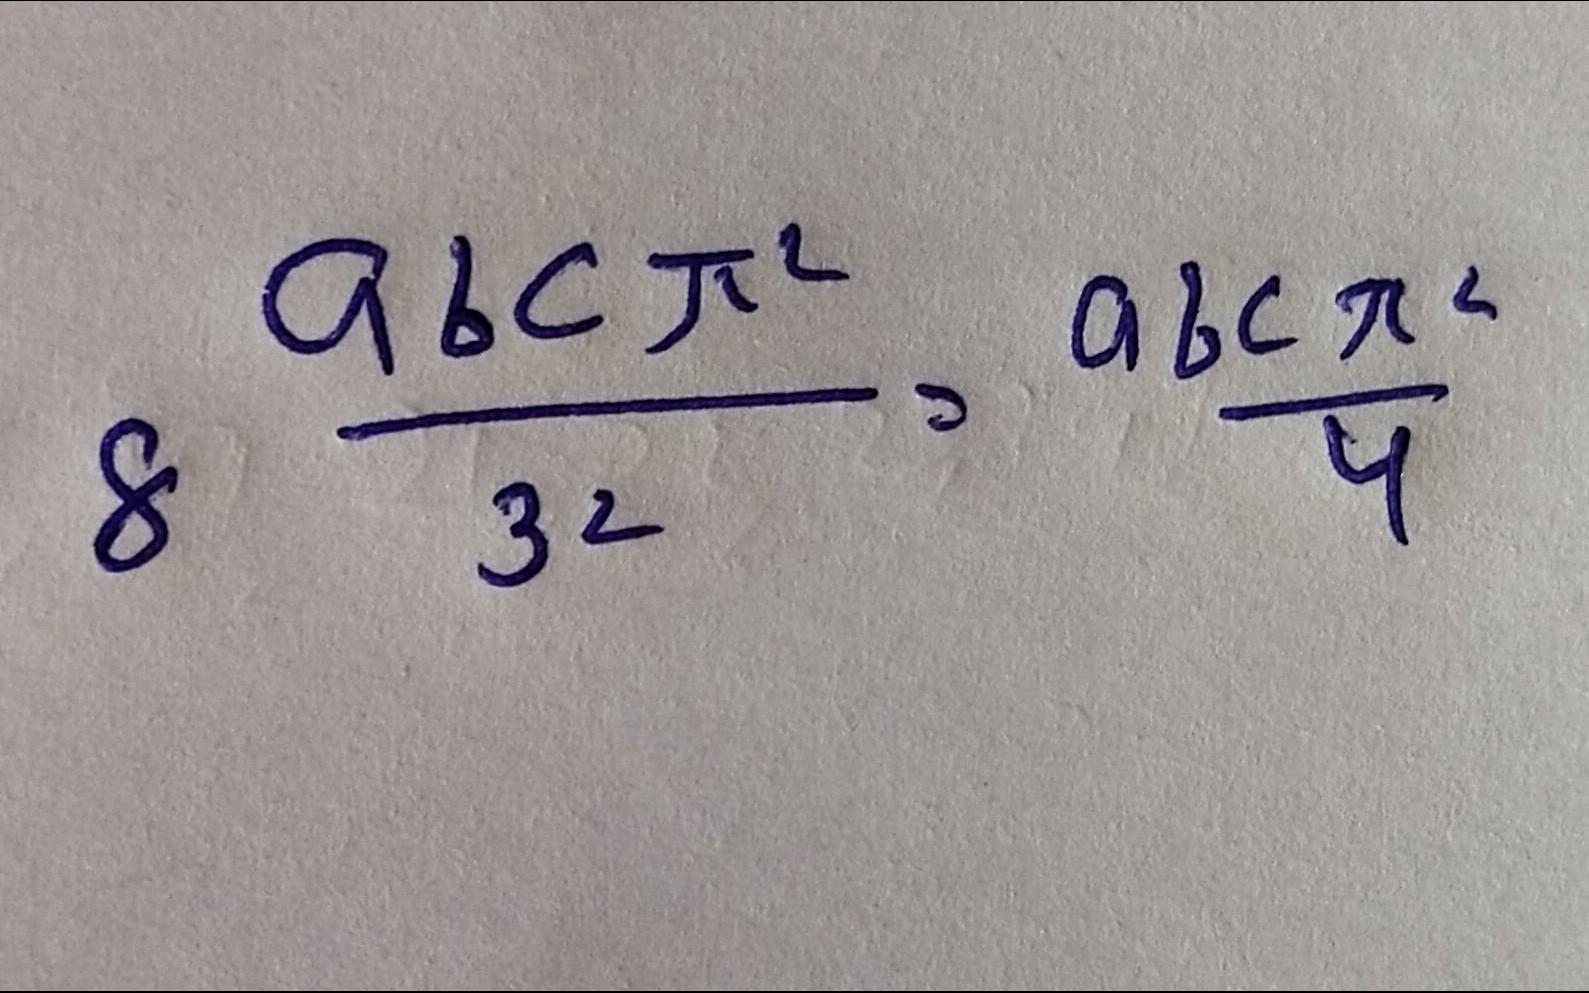 8 abcπ²/32 = abcπ²/4